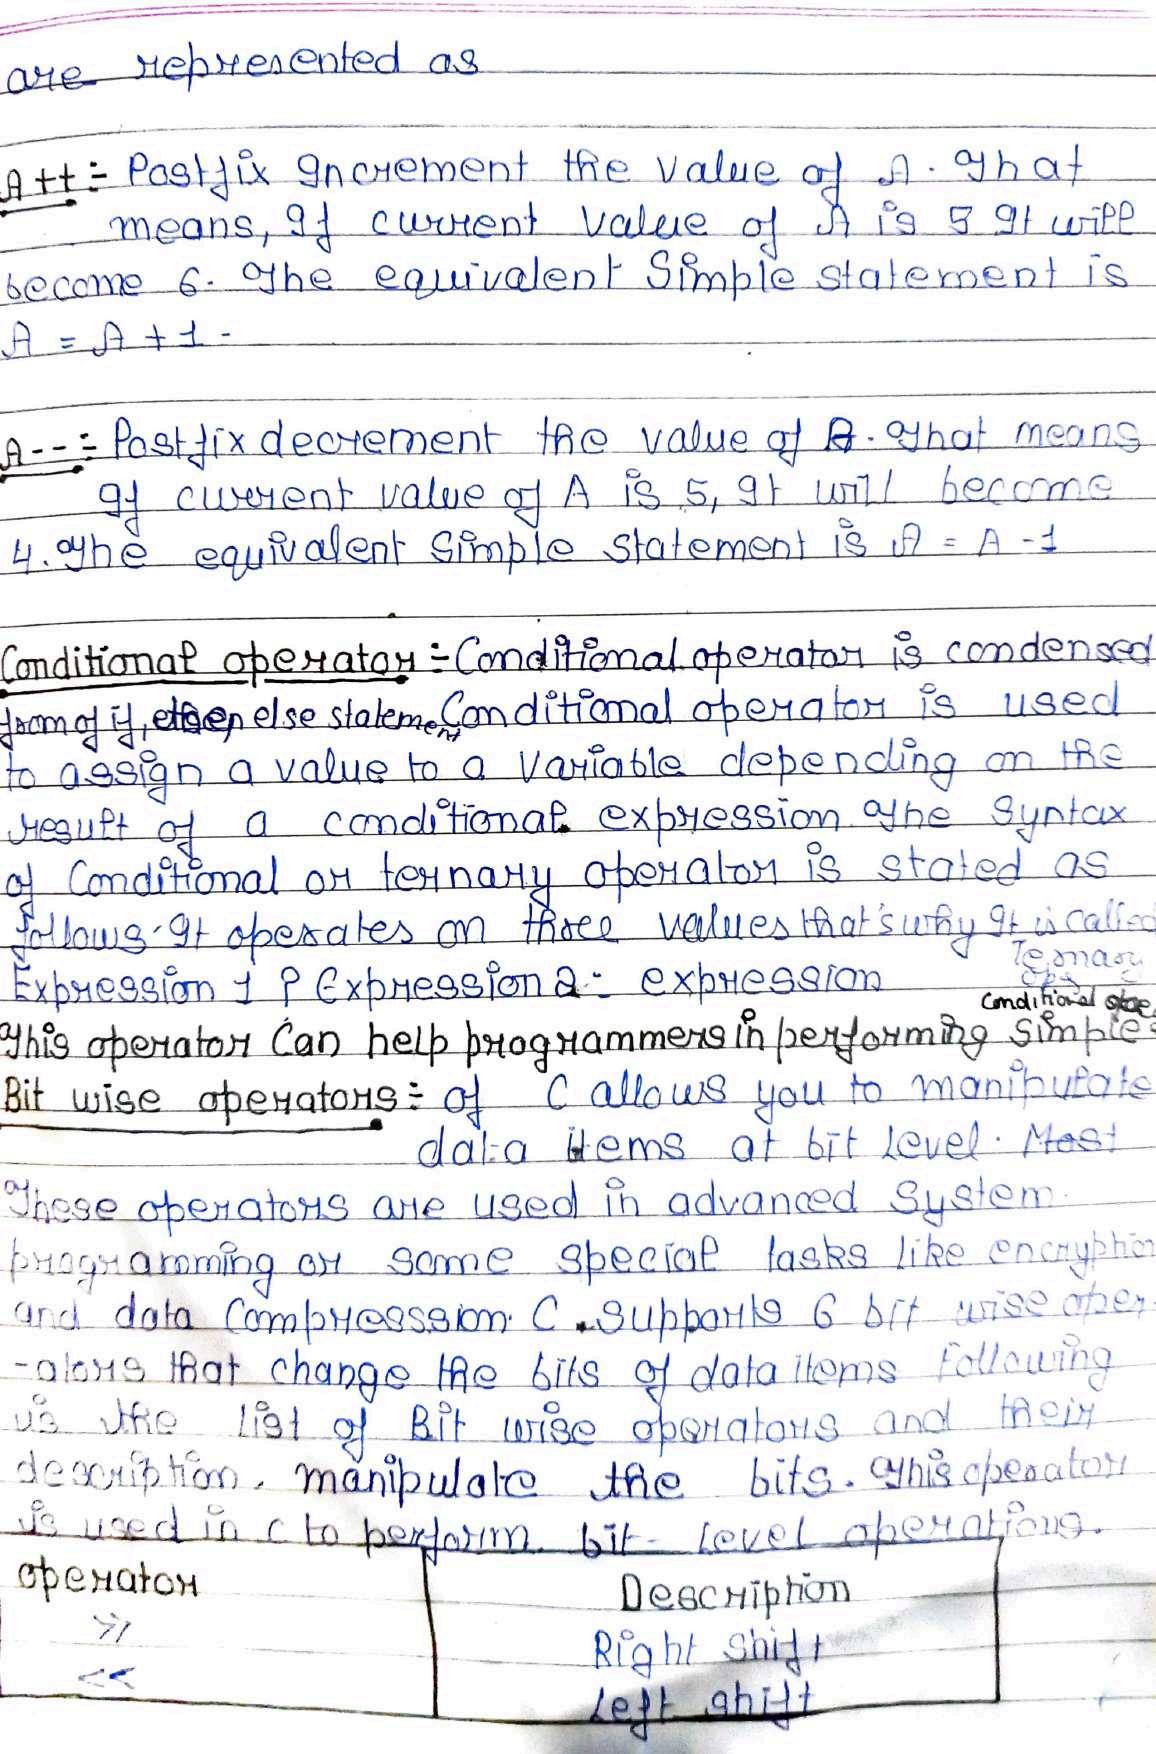 are represented as
A++:- Postfix Increment the value of A. That
means, If current value of A is 5 It will
become 6. The equivalent Simple statement is
A = A + 1 -
A--:- Postfix decrement the value of A. That means
If current value of A is 5, It will become
4. The equivalent Simple statement is A = A - 1
Conditional operator:- Conditional operator is condensed
from of if, else statement Conditional operator is used
to assign a value to a variable depending on the
result of a conditional expression The Syntax
of Conditional or ternary operator is stated as
follows. It operates on three values that's why It is called
Ternary
Expression 1 ? Expression 2 : expression
Conditional
This operator Can help programmers in performing Simple
Bit wise operators:- of C allows you to manipulate
data items at bit level. Most
These operators are used in advanced System
programming or some special tasks like encryption
and data Compresssion. C. Supports 6 bit wise oper-
-ators that change the bits of data items Following
is the list of Bit wise operators and their
description. manipulate the bits. This operator
is used in C to perform bit-level operations.
operator Description
>> Right Shift
<< Left shift